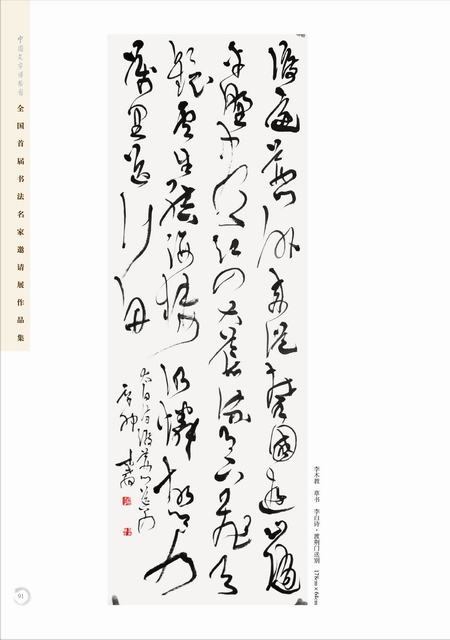 中国文字博物馆
全国首届书法名家邀请展作品集
渡远荆门外来从楚国游山随
平野尽江入大荒流月下飞天
镜云生结海楼仍怜故乡水
万里送行舟
太白诗渡荆门送别
李木教 草书 李白诗·渡荆门送别 178cm×64cm
91